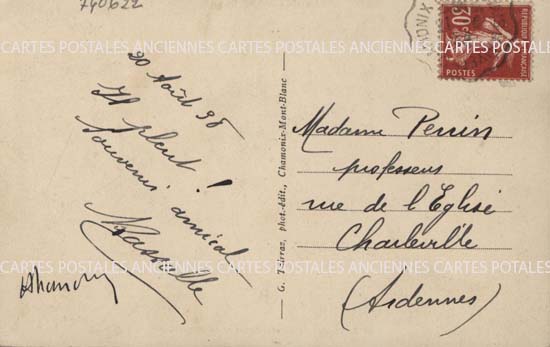 740622
20 Août 38
Il pleut !
Souvenir amical
Madame Perrin
professeur
rue de l'Eglise
Charleville
(Ardennes)
G. Tairraz, phot.-édit., Chamonix-Mont-Blanc
CHAMONIX
30
REPUBLIQUE FRANÇAISE
POSTES
CARTES POSTALES ANCIENNES CARTES POSTALES ANCIENNES CARTES POSTALES ANCIENNES
CARTES POSTALES ANCIENNES CARTES POSTALES ANCIENNES CARTES POSTALES